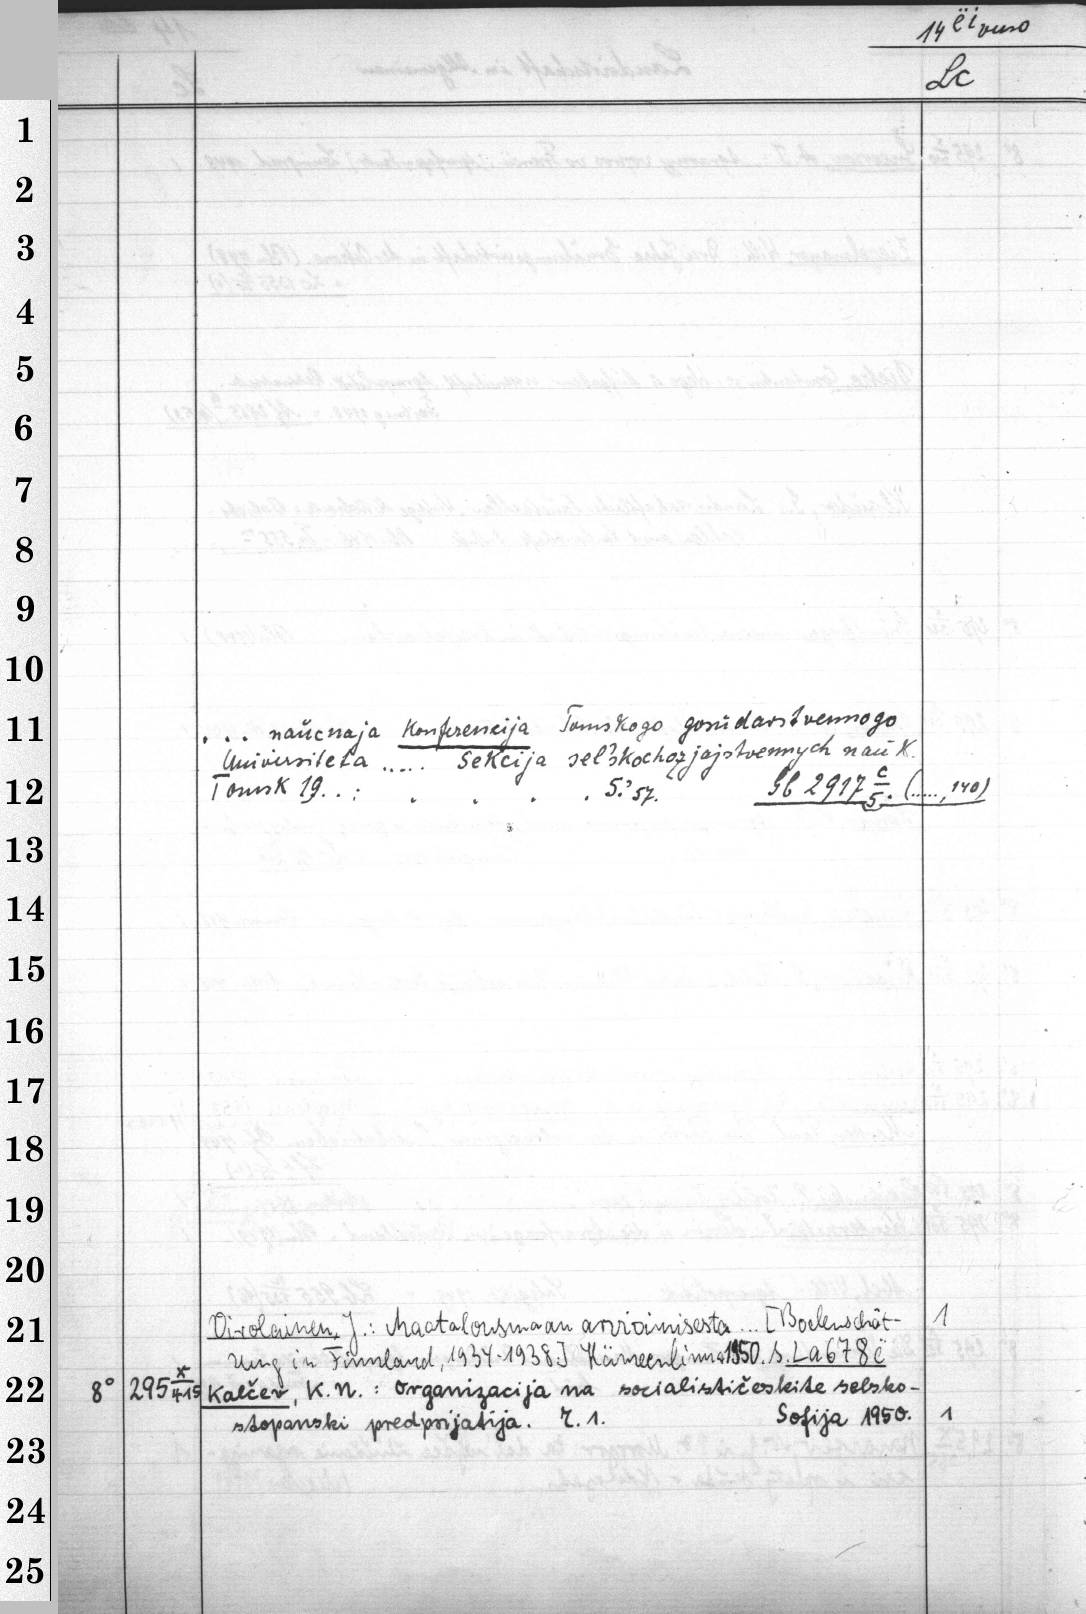 14 ëi verso
Lc
1
2
3
4
5
6
7
8
9
10
11
... naučnaja Konferencija Tomskogo gosudarstvennogo
Universiteta ..... Sekcija sel'skochozjajstvennych nauk.
12
Tomsk 19..: . . . . 5.'57. 2917 c/5. (....., 140)
13
14
15
16
17
18
19
20
21
Virolainen, J.: Maatalousmaan arvioimisesta ... [Bodenschät- 1
zung in Finnland, 1934-1938.] Hämeenlinna 1950. s. La 678 ë
22
8° 295 x/415 Kalčev, K.N.: Organizacija na socialističeskite selsko-
stopanski predprijatija. Č. 1. Sofija 1950. 1
23
24
25